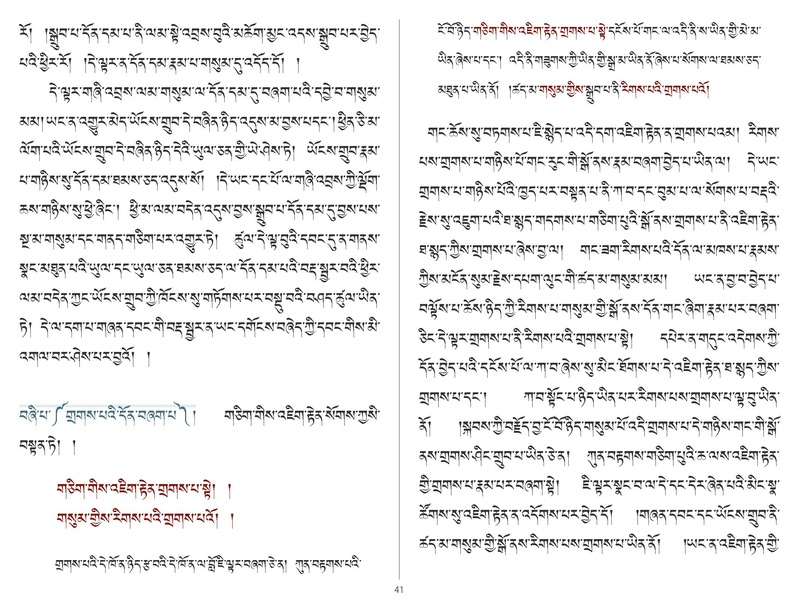 རོ། །སྒྲུབ་པ་དོན་དམ་པ་ནི་ལམ་སྟེ་འབྲས་བུའི་མཆོག་མྱང་འདས་སྒྲུབ་པར་བྱེད་
པའི་ཕྱིར་རོ། །དེ་ལྟར་ན་དོན་དམ་རྣམ་པ་གསུམ་དུ་འདོད་དོ། །
དེ་ལྟར་གཞི་འབྲས་ལམ་གསུམ་ལ་དོན་དམ་དུ་བཞག་པའི་དབྱེ་བ་གསུམ་
མམ། ཡང་ན་འགྱུར་མེད་ཡོངས་གྲུབ་དེ་བཞིན་ཉིད་འདུས་མ་བྱས་དང་། ཕྱིན་ཅི་མ་
ལོག་པའི་ཡོངས་གྲུབ་དེ་བཞིན་ཉིད་དེའི་ཡུལ་ཅན་གྱི་ཡེ་ཤེས་ཏེ། ཡོངས་གྲུབ་རྣམ་
པ་གཉིས་སུ་དོན་དམ་ཐམས་ཅད་འདུས་སོ། །དེ་ཡང་དང་པོ་ལ་གཞི་འབྲས་ཀྱི་ལྡོག་
ཆས་གཉིས་སུ་ཕྱེ་ཞིང་། ཕྱི་མ་ལམ་བདེན་འདུས་བྱས་སྒྲུབ་པ་དོན་དམ་དུ་བྱས་པས་
སྔ་མ་གསུམ་དང་གནད་གཅིག་པར་འགྱུར་ཏེ། ཚུལ་དེ་ལྟ་བུའི་དབང་དུ་ན་གནས་
སྣང་མཐུན་པའི་ཡུལ་དང་ཡུལ་ཅན་ཐམས་ཅད་ལ་དོན་དམ་པའི་བརྡ་སྦྱར་བའི་ཕྱིར་
ལམ་བདེན་ཀྱང་ཡོངས་གྲུབ་ཀྱི་ཁོངས་སུ་གཏོགས་པར་བསྡུ་བའི་བཤད་ཚུལ་ཡིན་
ཏེ། དེ་ལ་དག་པ་གཞན་དབང་གི་བརྡ་སྦྱར་ན་ཡང་དགོངས་བཞེད་ཀྱི་དབང་གིས་མི་
འགལ་བར་ཤེས་པར་བྱའོ། །
བཞི་པ་༼གྲགས་པའི་དོན་བཞག་པ་༽། གཅིག་གིས་འཇིག་རྟེན་སོགས་ཀྱིས་
བསྟན་ཏེ། །
གཅིག་གིས་འཇིག་རྟེན་གྲགས་པ་སྟེ། །
གསུམ་གྱིས་རིགས་པའི་གྲགས་པའོ། །
གྲགས་པའི་དེ་ཁོ་ན་ཉིད་རྩ་བའི་དེ་ཁོ་ན་ལ་བློ་ཇི་ལྟར་བཞག་ཅེ་ན། ཀུན་བརྟགས་པའི་
ངོ་བོ་ཉིད་གཅིག་གིས་འཇིག་རྟེན་གྲགས་པ་སྟེ་དངོས་པོ་གང་ལ་འདི་ནི་ས་ཡིན་གྱི་མེ་མ་
ཡིན་ཞེས་པ་དང་། འདི་ནི་གཟུགས་ཀྱི་ཡིན་གྱི་སྒྲ་མ་ཡིན་ནོ་ཞེས་པ་སོགས་ལ་ཐམས་ཅད་
མཐུན་པ་ཡིན་ནོ། །ཚད་མ་གསུམ་གྱིས་སྒྲུབ་པ་ནི་རིགས་པའི་གྲགས་པའོ།
གང་ཆོས་སུ་བཏགས་པ་ཇི་སྙེད་པ་འདི་དག་འཇིག་རྟེན་ན་གྲགས་པའམ། རིགས་
པས་གྲགས་པ་གཉིས་པོ་གང་རུང་གི་སྒོ་ནས་རྣམ་བཞག་བྱེད་པ་ཡིན་ལ། དེ་ཡང་
གྲགས་པ་གཉིས་པོའི་ཁྱད་པར་བསྟན་པ་ནི་ཀ་བ་དང་བུམ་པ་ལ་སོགས་པ་བརྡའི་
རྗེས་སུ་འཇུག་པའི་ཐ་སྙད་གདགས་པ་གཅིག་པུའི་སྒོ་ནས་གྲགས་པ་ནི་འཇིག་རྟེན་
ཐ་སྙད་ཀྱིས་གྲགས་པ་ཞེས་བྱ་ལ། གང་ཟག་རིགས་པའི་དོན་ལ་མཁས་པ་རྣམས་
ཀྱིས་མངོན་སུམ་རྗེས་དཔག་ལུང་གི་ཚད་མ་གསུམ་མམ། ཡང་ན་བྱ་བ་བྱེད་པ་
བལྟོས་པ་ཆོས་ཉིད་ཀྱི་རིགས་པ་གསུམ་གྱི་སྒོ་ནས་དོན་གང་ཞིག་རྣམ་པར་བཞག་
ཅིང་དེ་ལྟར་གྲགས་པ་ནི་རིགས་པའི་གྲགས་པ་སྟེ། དཔེར་ན་གདུང་འདེགས་ཀྱི་
དོན་བྱེད་པའི་དངོས་པོ་ལ་ཀ་བ་ཞེས་སུ་མིང་ཐོགས་པ་དེ་འཇིག་རྟེན་ཐ་སྙད་ཀྱིས་
གྲགས་པ་དང་། ཀ་བ་སྟོང་པ་ཉིད་ཡིན་པར་རིགས་པས་གྲགས་པ་ལྟ་བུ་ཡིན་
ནོ། །སྐབས་ཀྱི་བརྗོད་བྱ་ངོ་བོ་ཉིད་གསུམ་པོ་འདི་གྲགས་པ་དེ་གཉིས་གང་གི་སྒོ་
ནས་གྲགས་ཤིང་གྲུབ་པ་ཡིན་ཅེ་ན། ཀུན་བརྟགས་གཅིག་པུའི་ཆ་ལས་འཇིག་རྟེན་
གྱི་གྲགས་པ་རྣམ་པར་བཞག་སྟེ། ཇི་ལྟར་སྣང་བ་ལ་དེ་དང་དེར་ཞེན་པའི་མིང་སྣ་
ཚོགས་སུ་འཇིག་རྟེན་ན་འདོགས་པར་བྱེད་དོ། །གཞན་དབང་དང་ཡོངས་གྲུབ་ནི་
ཚད་མ་གསུམ་གྱི་སྒོ་ནས་རིགས་པས་གྲགས་པ་ཡིན་ནོ། །ཡང་ན་འཇིག་རྟེན་གྱི་
41